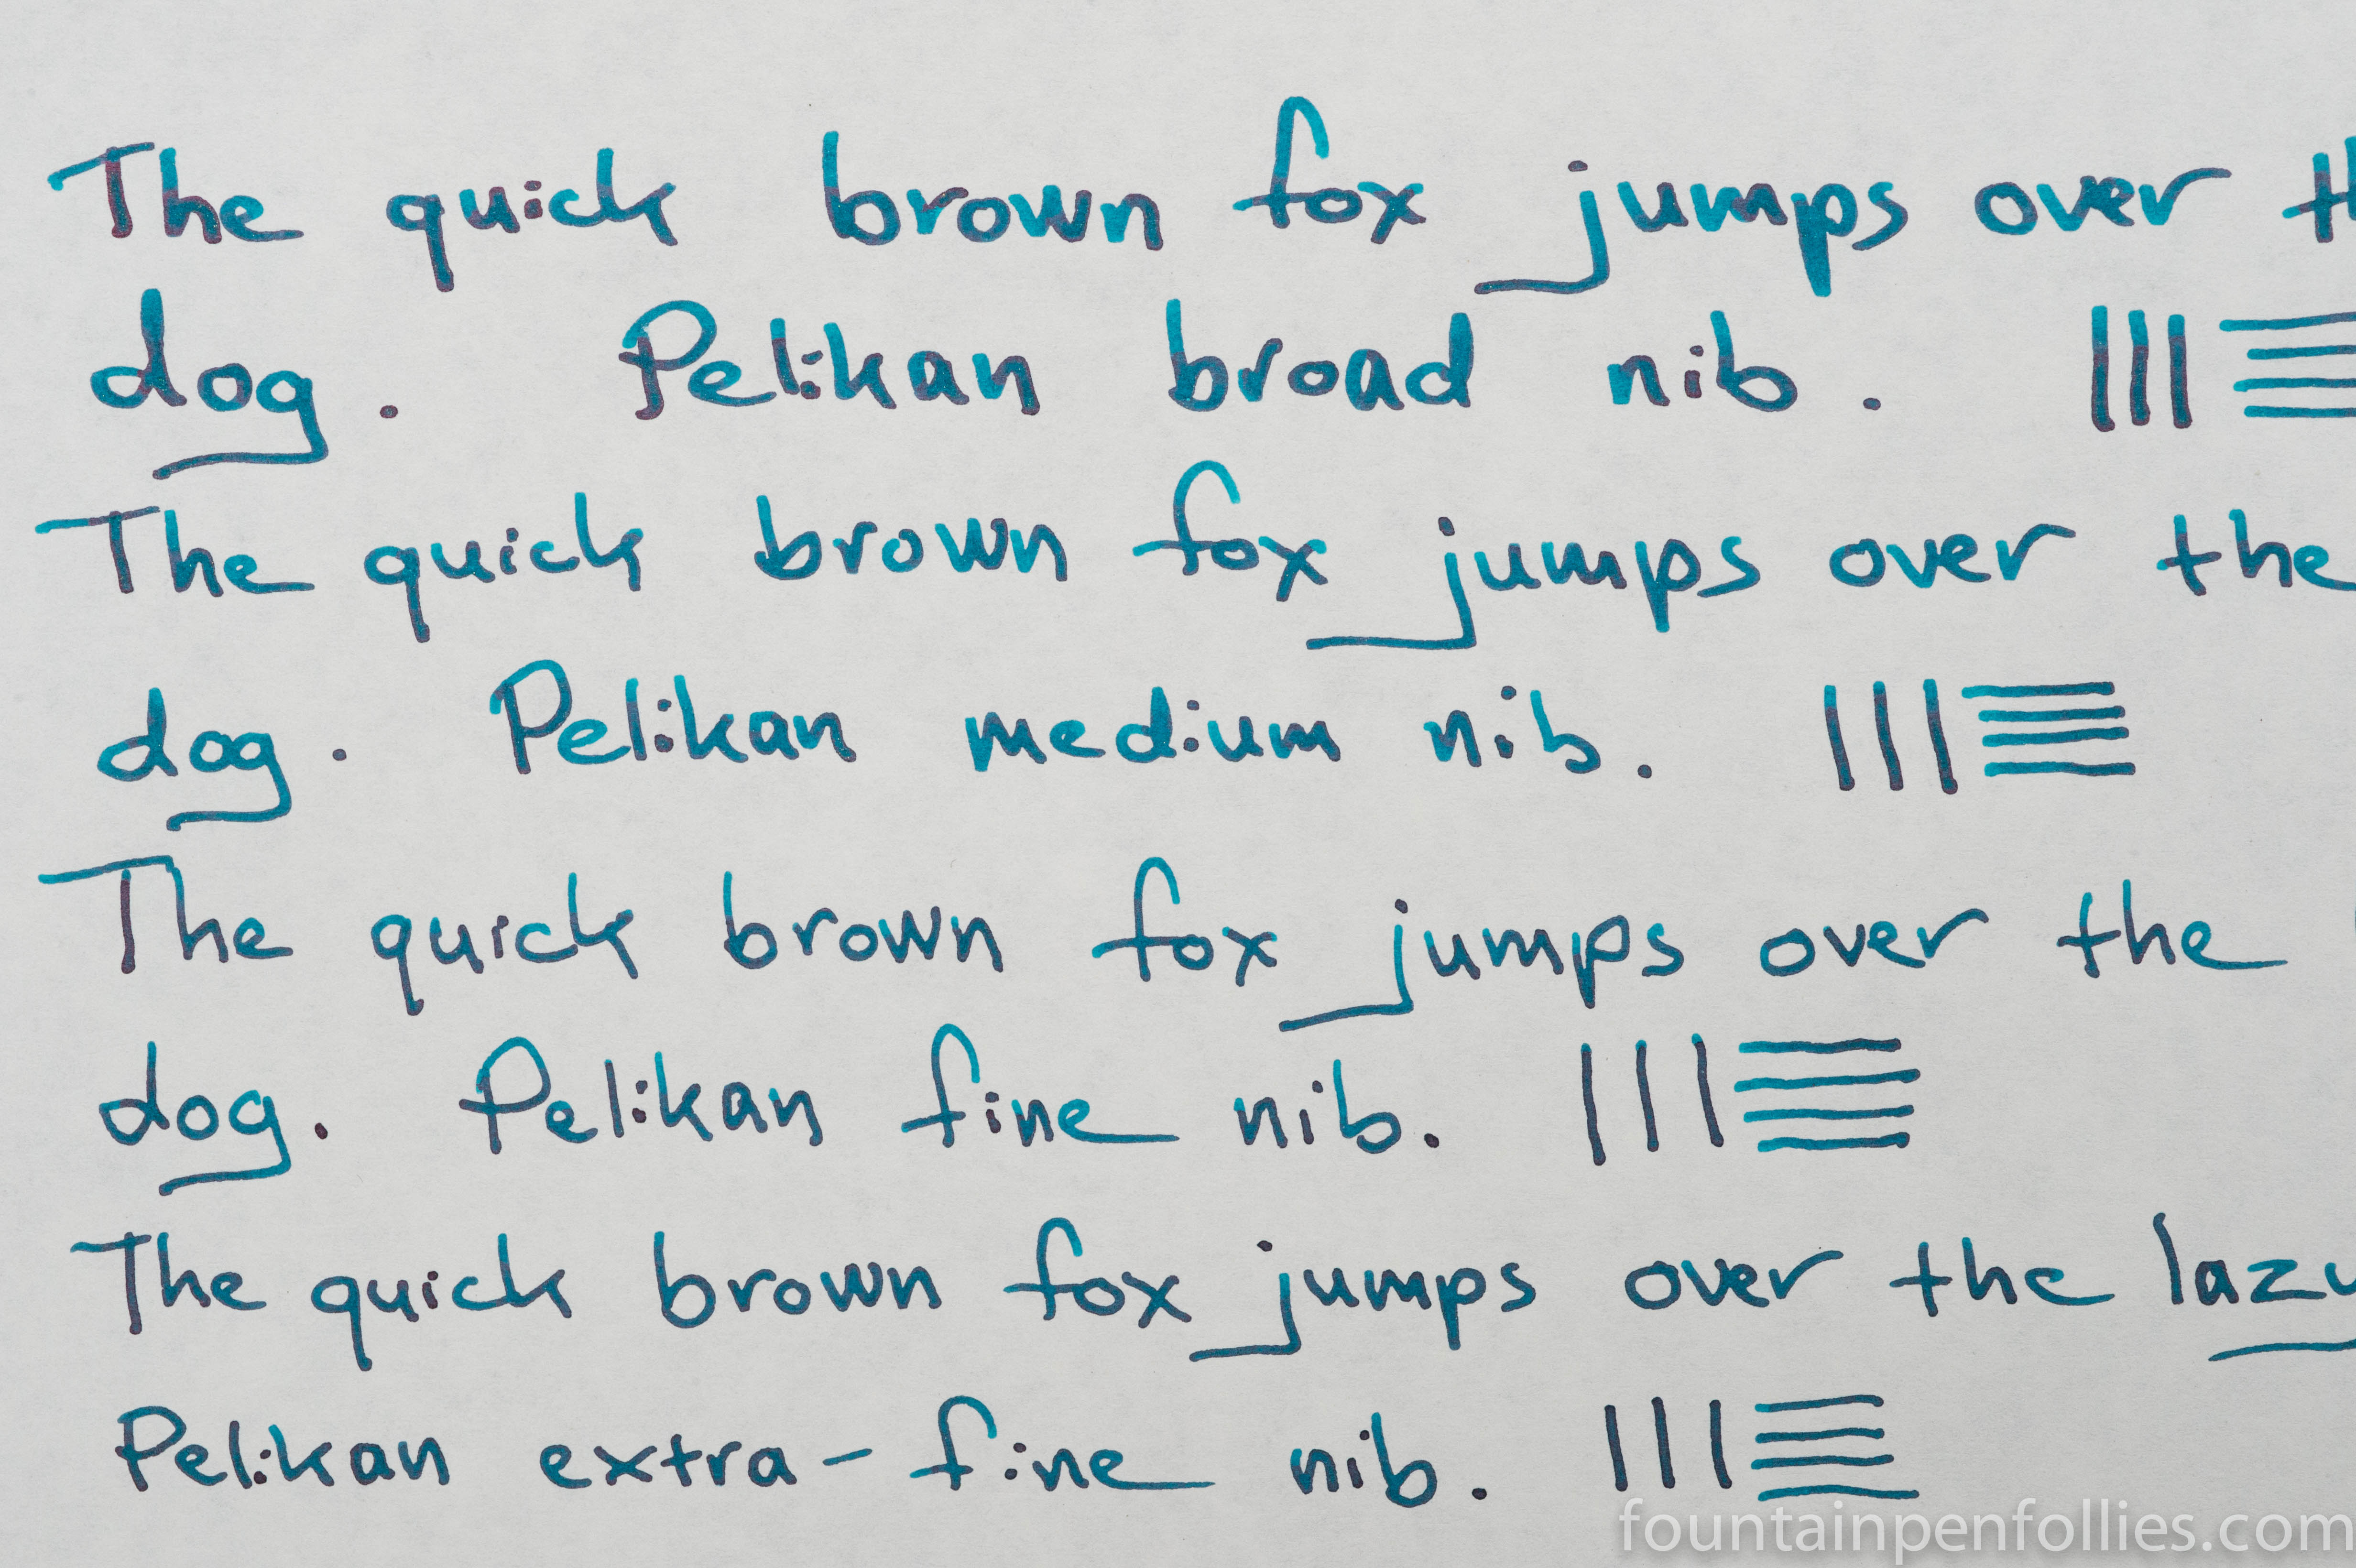 The quick brown fox jumps over th
dog. Pelikan broad nib.
The quick brown fox jumps over the
dog. Pelikan medium nib.
The quick brown fox jumps over the
dog. Pelikan fine nib.
The quick brown fox jumps over the lazy
Pelikan extra-fine nib.
fountainpenfollies.com